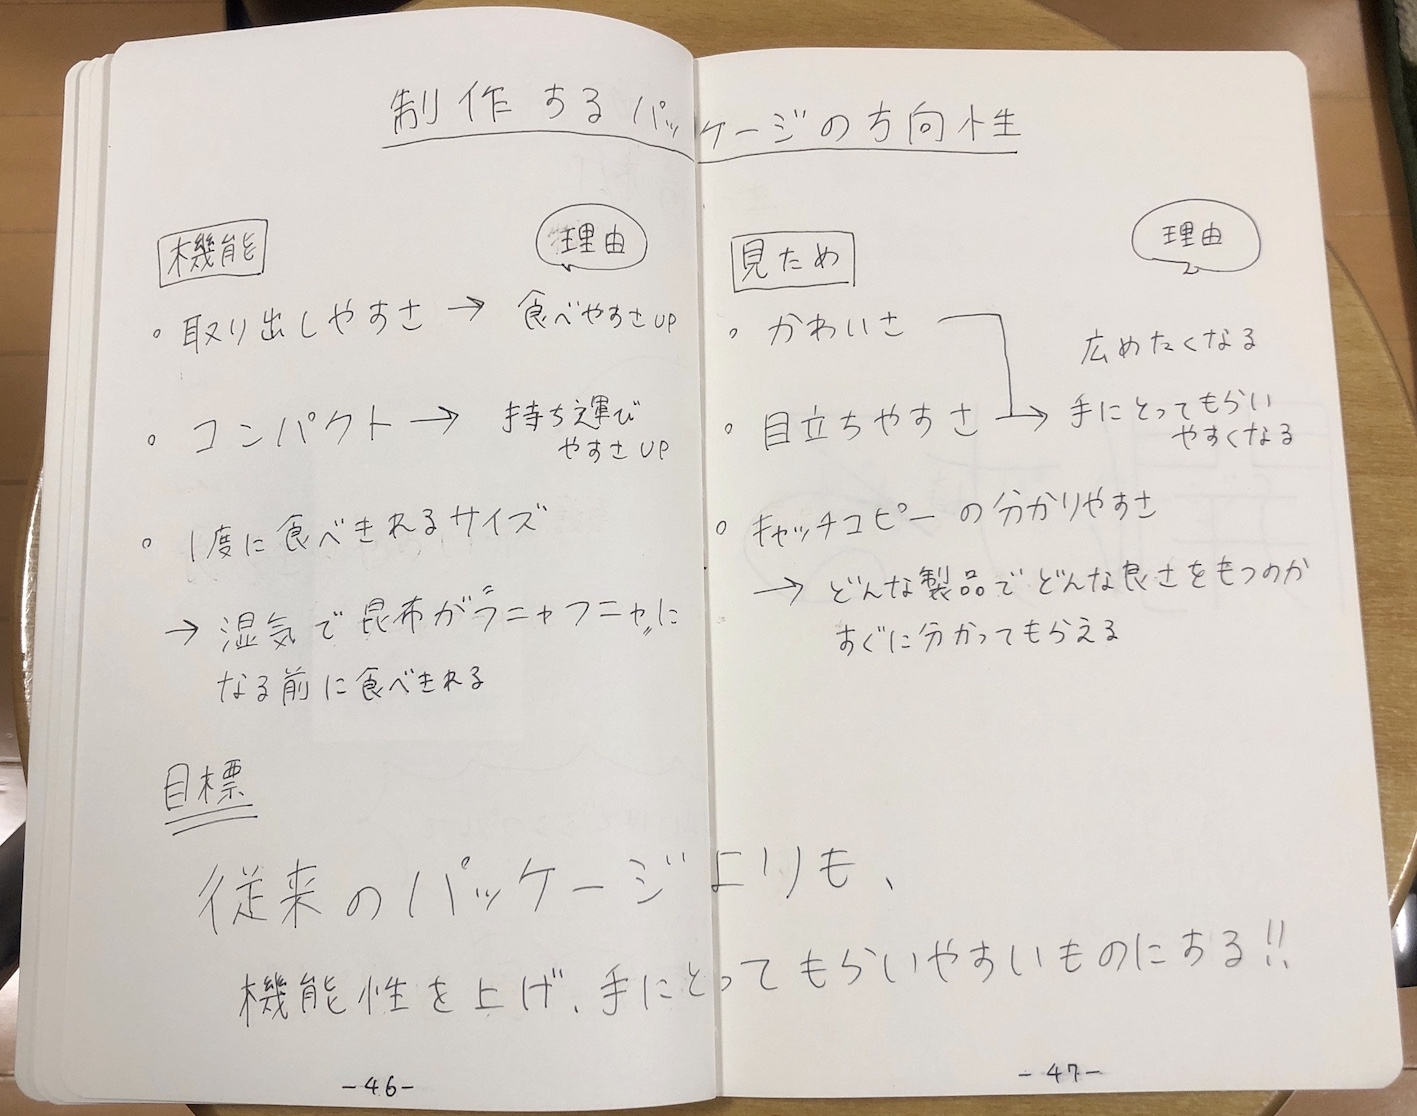 制作するパッケージの方向性
機能
理由
。取り出しやすさ → 食べやすさUP
。コンパクト → 持ち運び
やすさUP
。1度に食べきれるサイズ
→ 湿気で昆布が"フニャフニャ"に
なる前に食べきれる
見ため
理由
。かわいさ
広めたくなる
。目立ちやすさ → 手にとってもらい
やすくなる
。キャッチコピーの分かりやすさ
→ どんな製品でどんな良さをもつのか
すぐに分かってもらえる
目標
従来のパッケージよりも、
機能性を上げ、手にとってもらいやすいものにする!!
-46-
-47-